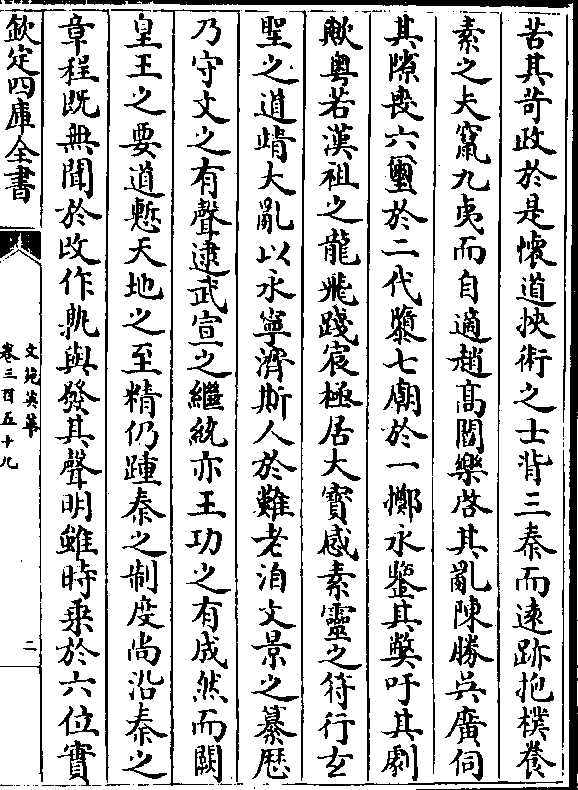 苦其苛政於是懷道挾術之士背三秦而遠跡抱樸養
素之夫竄九夷而自適趙高閻樂啓其亂陳勝吳廣伺
其隙喪六璽於二代隳七廟於一擲永鑒其獘吁其劇
歟粵若漢祖之龍飛踐宸極居大寳感素靈之符行玄
聖之道靖大亂以永寧濟斯人於難老洎文景之纂歴
乃守文之有聲逮武宣之繼統亦王功之有成然而闕
皇王之要道慙天地之至精仍踵秦之制度尚沿秦之
章程既無聞於改作孰與發其聲明雖時乗於六位實
欽定四庫全書
文苑英華
卷三百五十九
二